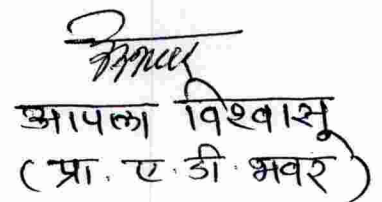 आपला विश्वासू
(प्रा. ए. डी. भवर)